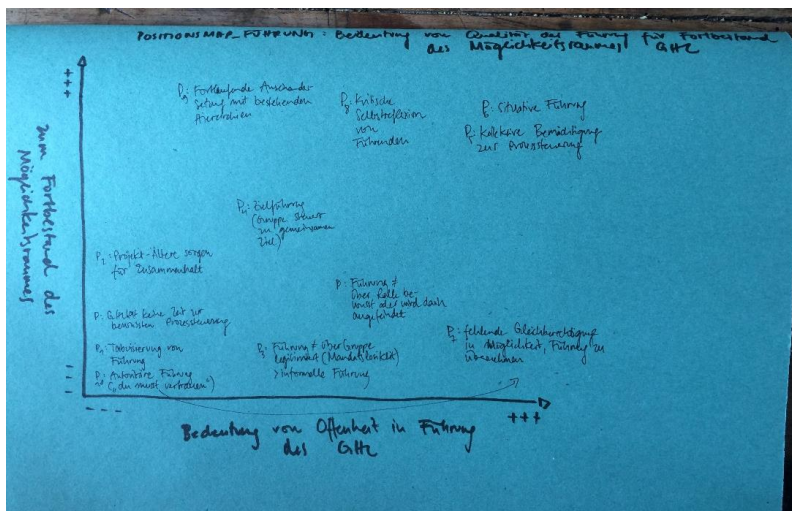 POSITIONSMAP_FÜHRUNG: Bedeutung von Qualität der Führung für Fortbestand
des Möglichkeitsraumes GHZ
+++
zum Fortbestand des
Möglichkeitsraumes
P: Fortlaufende Auseinander
setzung mit bestehenden
Hierarchien
P8: Kritische
Selbstreflexion
von
Führenden
P: Situative Führung
P: Kollektive Bemächtigung
zur Prozesssteuerung
P4: Zielführung
(Gruppe steuert
zu gemeinsamen
Ziel)
P1: Projekt-Ältere sorgen
für Zusammenhalt
P: Führung ≠
über Rolle be-
wusst oder wird dafür
angefeindet
P: Gibt/hat keine Zeit zur
bewussten Prozesssteuerung
P: Tabuisierung von
Führung
P: Führung ≠ über Gruppe
legitimiert
> informelle Führung
P7: fehlende Gleichberechtigung
in Möglichkeit, Führung zu
übernehmen
P: Autoritäre Führung
("du musst vertrauen")
- - -
- - - -
+++
Bedeutung von Offenheit in Führung
des GHZ